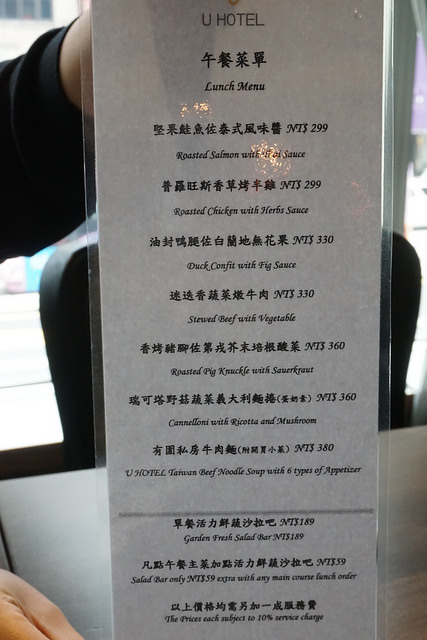 U HOTEL
午餐菜單
Lunch Menu
堅果鮭魚佐泰式風味醬 NT$ 299
Roasted Salmon with Thai Sauce
普羅旺斯香草烤半雞 NT$ 299
Roasted Chicken with Herbs Sauce
油封鴨腿佐白蘭地無花果 NT$ 330
Duck Confit with Fig Sauce
迷迭香蔬菜燉牛肉 NT$ 330
Stewed Beef with Vegetable
香烤豬腳佐第戎芥末培根酸菜 NT$ 360
Roasted Pig Knuckle with Sauerkraut
瑞可塔野菇蔬菜義大利麵捲(蛋奶素) NT$ 360
Cannelloni with Ricotta and Mushroom
有園私房牛肉麵(附開胃小菜) NT$ 380
U HOTEL Taiwan Beef Noodle Soup with 6 types of Appetizer
單餐活力鮮蔬沙拉吧 NT$189
Garden Fresh Salad Bar NT$189
凡點午餐主菜加點活力鮮蔬沙拉吧 NT$59
Salad Bar only NT$59 extra with any main course lunch order
以上價格均需另加一成服務費
The Prices each subject to 10% service charge